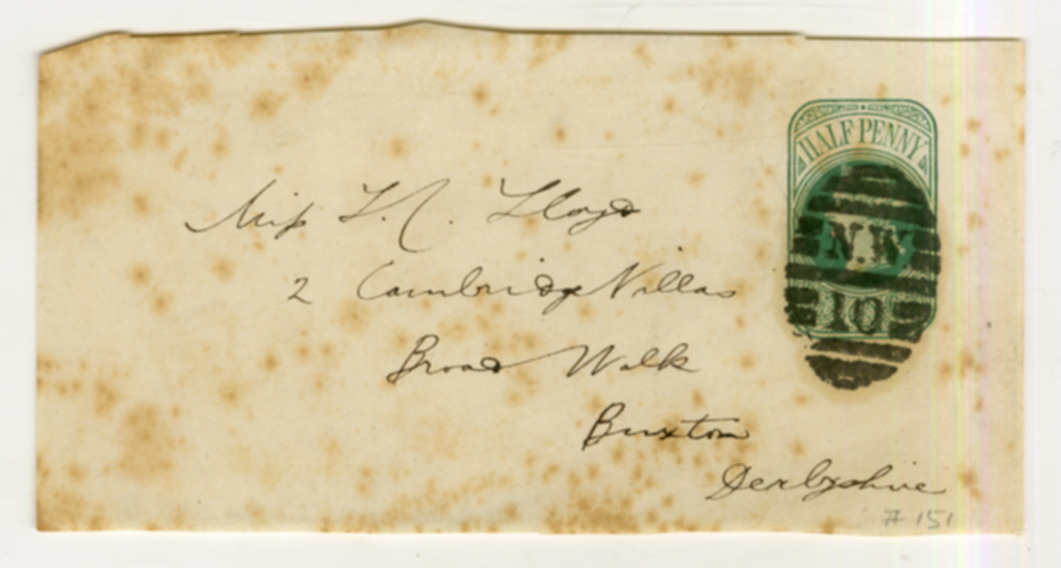 HALF PENNY
N.W
10
Miss L. C. Lloyd
2 Cambridge Villas
Broad Walk
Buxton
Derbyshire
# 151